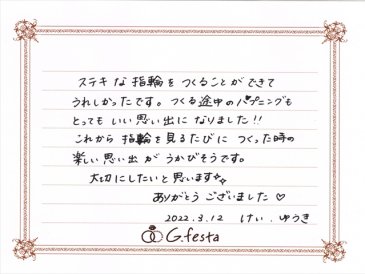 ステキな指輪をつくることができて
うれしかったです。つくる途中のハプニングも
とってもいい思い出になりました!!
これから指輪を見るたびにつくった時の
楽しい思い出がうかびそうです。
大切にしたいと思います✨
ありがとうございました♡
2022.3.12 けい.ゆうき
G.festa